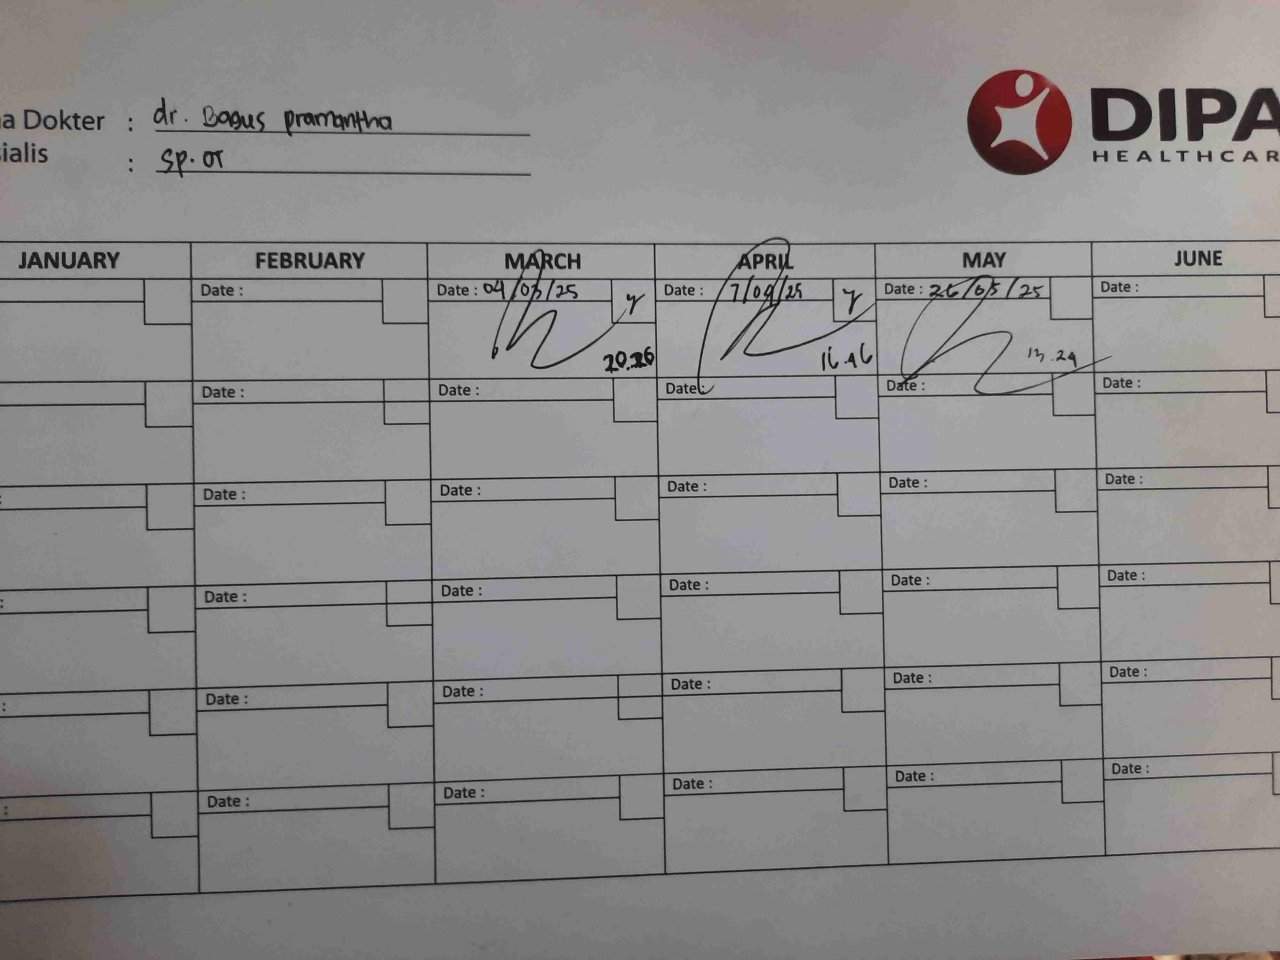 a Dokter : dr. Bagus pramantha
ialis : Sp. OT
DIPA
HEALTHCAR
JANUARY FEBRUARY MARCH APRIL MAY JUNE
Date : Date : 04/03/25 y Date : 7/04/25 y Date : 26/05/25 Date :
20.26 16.46 13.24
Date : Date : Date : Date : Date :
: Date : Date : Date : Date : Date :
: Date : Date : Date : Date : Date :
: Date : Date : Date : Date : Date :
: Date : Date : Date : Date : Date :